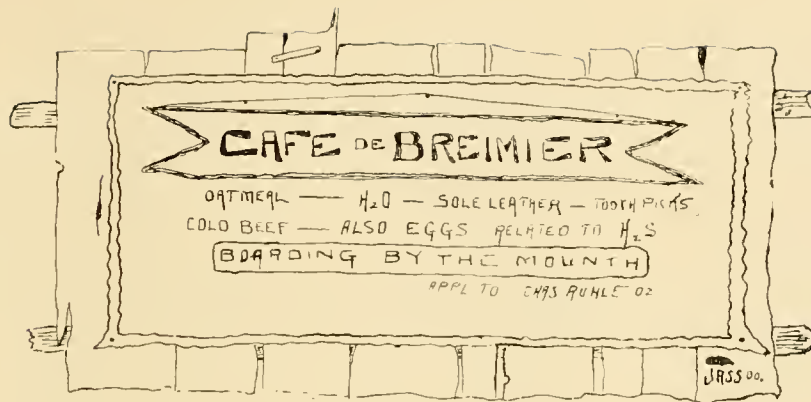 CAFE DE BREIMIER
OATMEAL — H2O — SOLE LEATHER — TOOTH PICKS
COLD BEEF — ALSO EGGS RELATED TO H2S
BOARDING BY THE MOUNTH
APPL TO CHAS RUHLE 02
JASS 00.